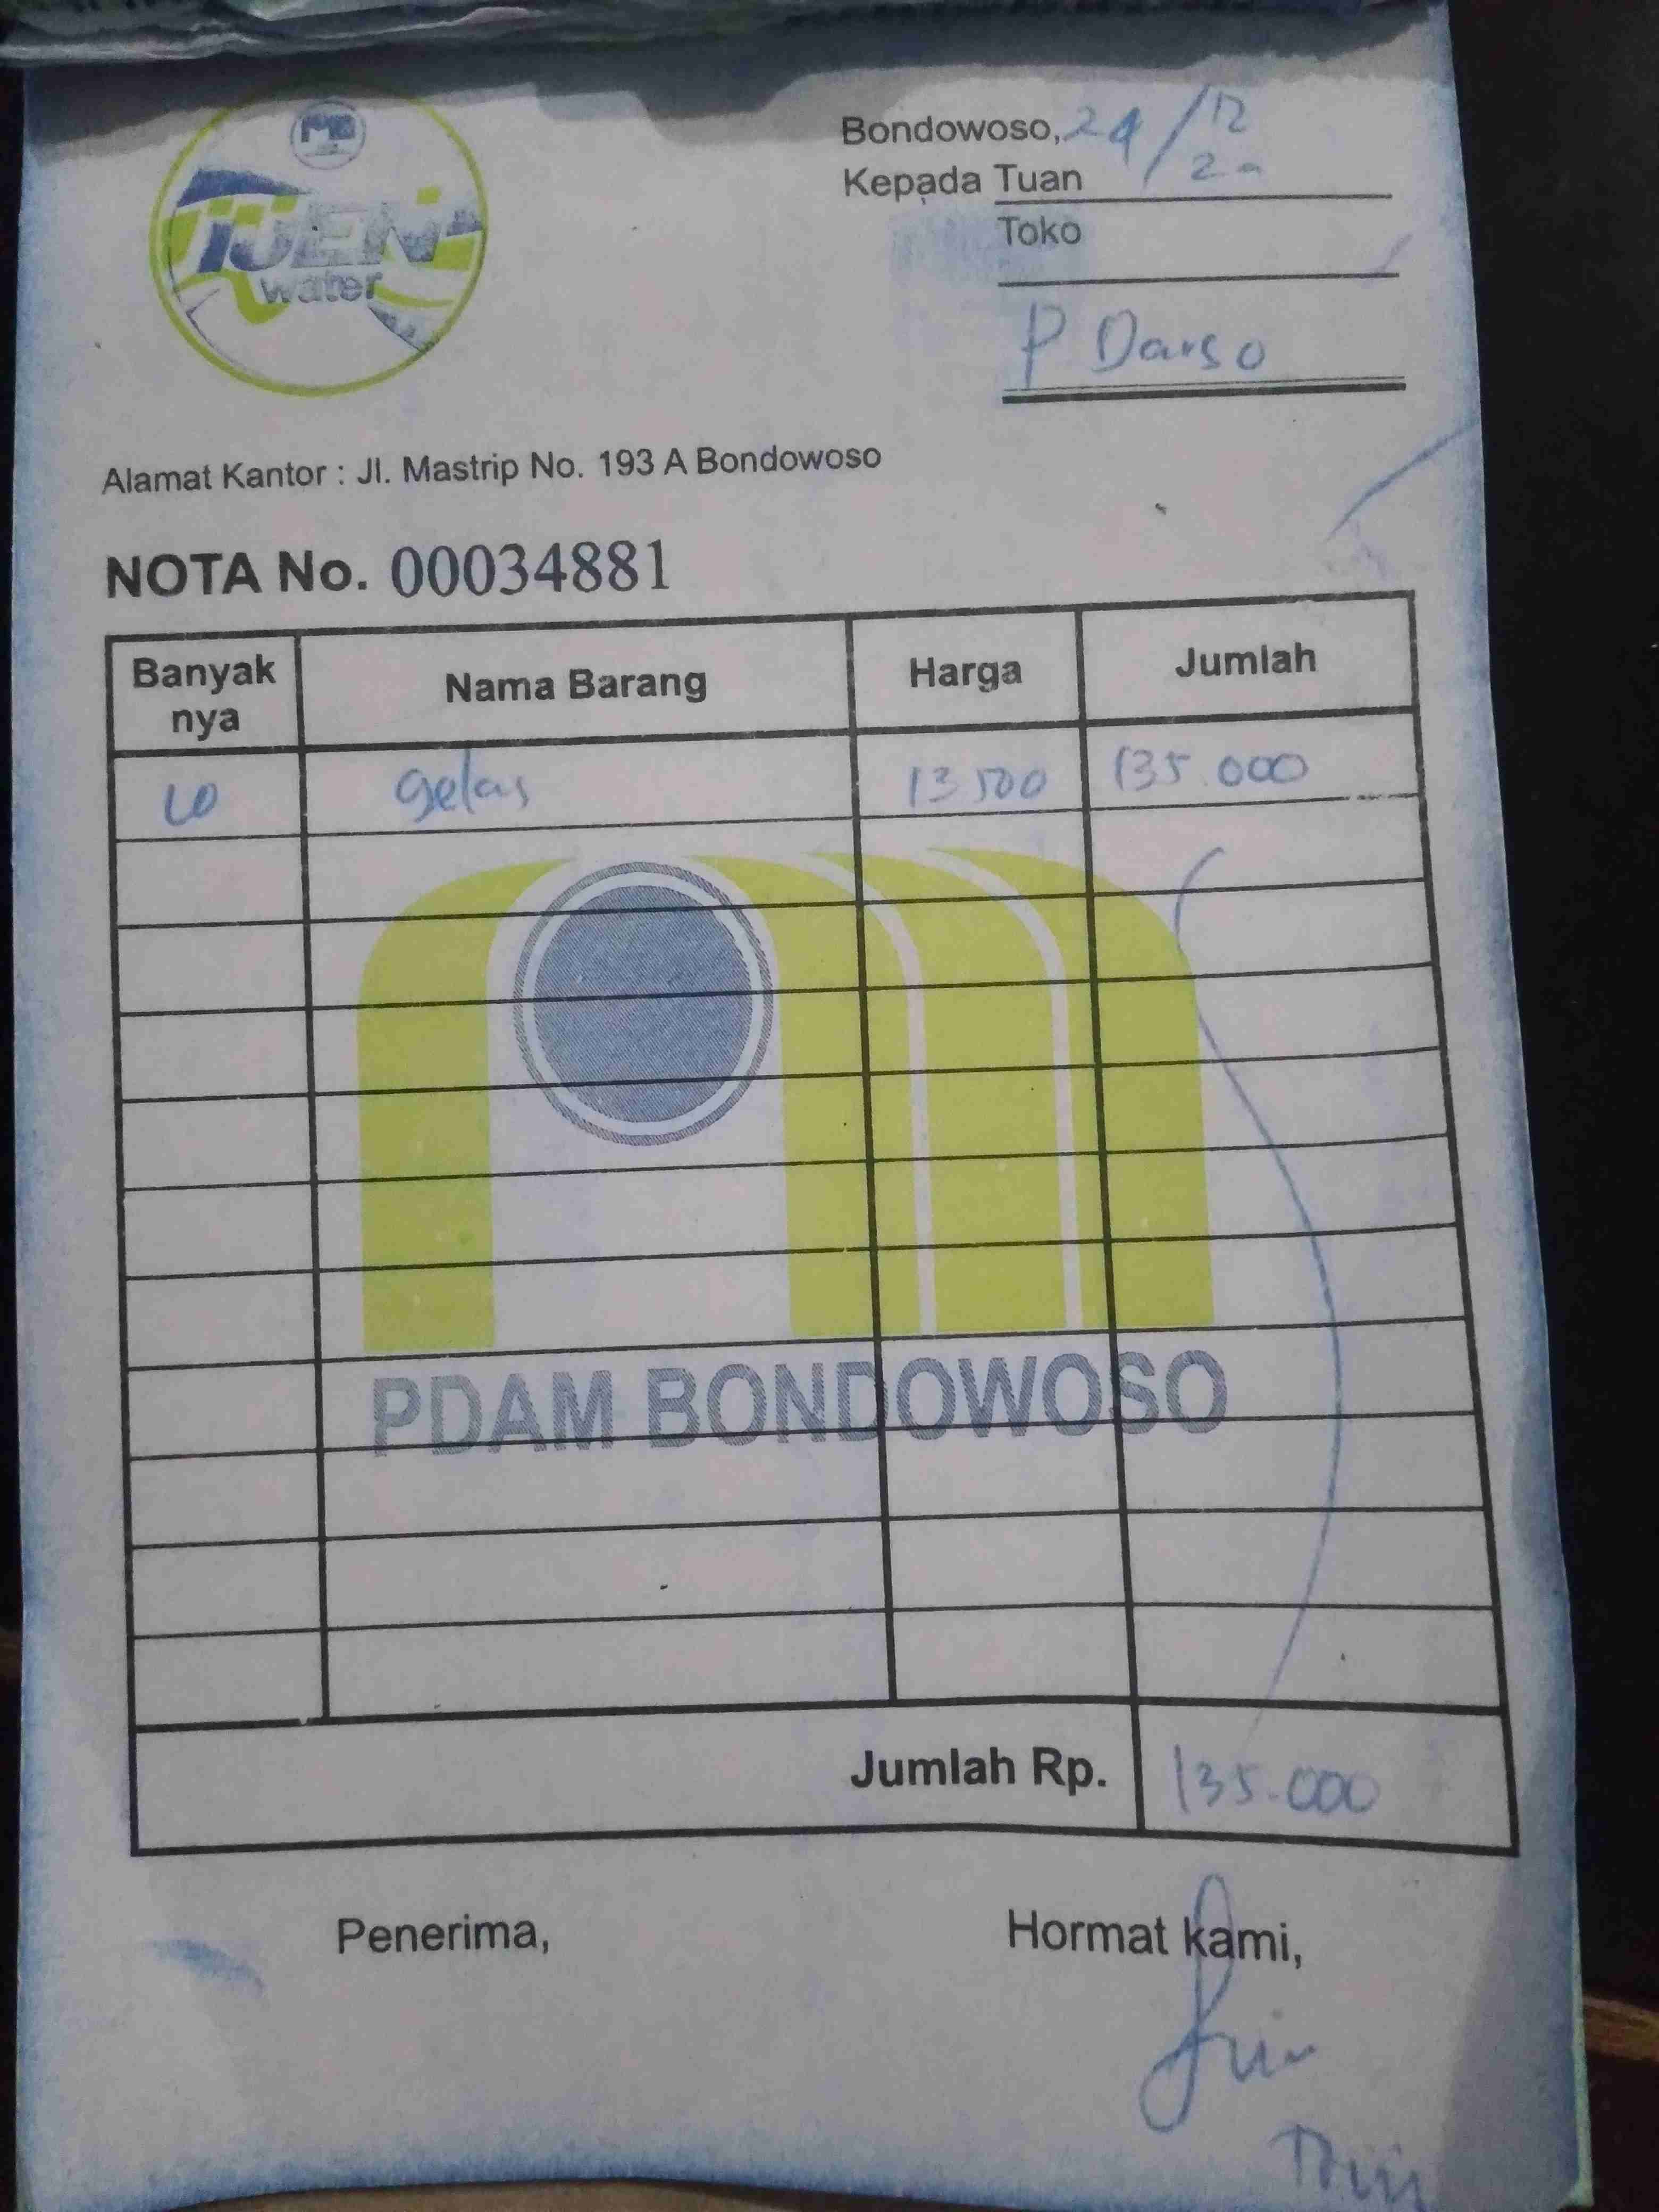 IJEN
water
Bondowoso, 24/12
20
Kepada Tuan
Toko
P Darso
Alamat Kantor : Jl. Mastrip No. 193 A Bondowoso
NOTA No. 00034881
Banyak nya Nama Barang Harga Jumlah
10 gelas 13500 135.000
PDAM BONDOWOSO
Jumlah Rp. 135.000
Penerima, Hormat kami,